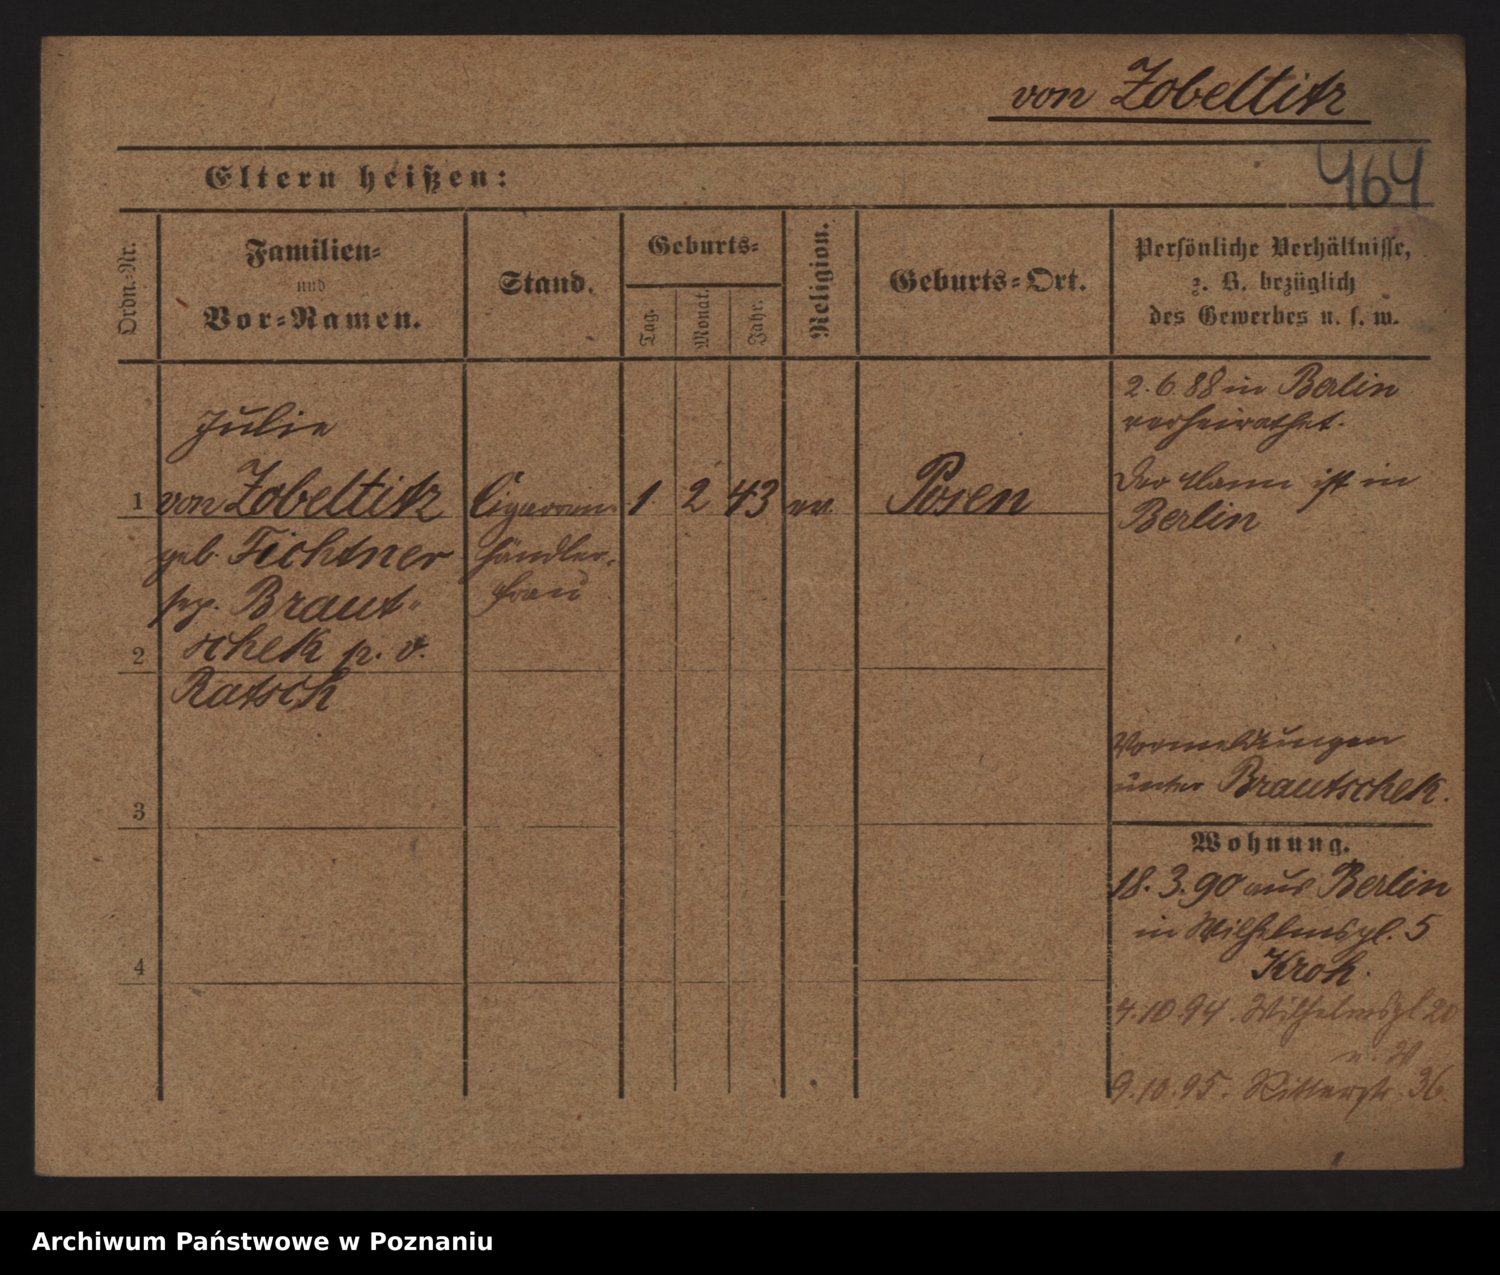 von Zobeltitz
464
Eltern heißen:
Ordn.-Nr.
Familien-
und
Vor-Namen.
Stand.
Geburts-
Tag.
Monat.
Jahr.
Religion.
Geburts-Ort.
Persönliche Verhältnisse,
z. B. bezüglich
des Gewerbes u. s. w.
Julie
1 von Zobeltitz Cigarren- 1 2 43 ev. Posen
geb. Fichtner händler-
sep. Braut- frau
2 schek p. v.
Ratsch
3
4
2.6.88 in Berlin
verheirathet.
Der Mann ist in
Berlin
Vormeldungen
unter Brautschek.
Wohnung.
18.3.90 aus Berlin
in Wilhelmspl. 5
Kroh.
4.10.94. Wilhelmspl 20
9.10.95. Ritterstr. 36.
Archiwum Państwowe w Poznaniu